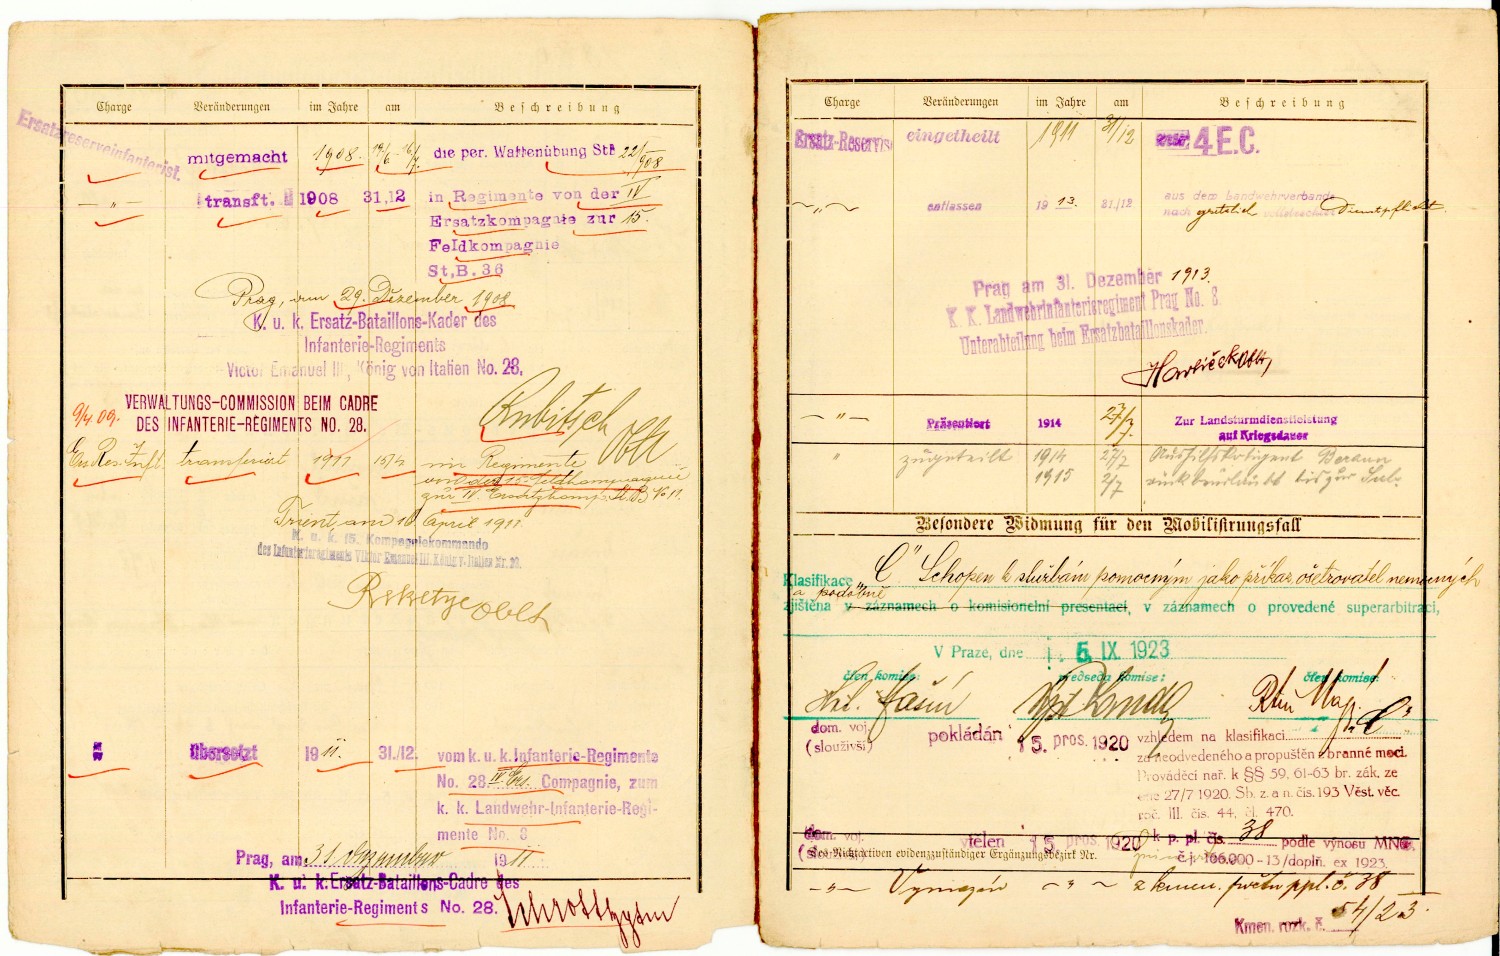 Charge Veränderungen im Jahre am Beschreibung
Ersatzreserveinfanterist.
mitgemacht 1908. 19/6 - 16/7. die per. Waffenübung StB 22/908
— „ — transft. 1908 31,12 in Regimente von der IV
Ersatzkompagnie zur 15.
Feldkompagnie
St,B. 36
Prag, am 29. Dezember 1908
K. u. k. Ersatz-Bataillons-Kader des
Infanterie-Regiments
Victor Emanuel III, König von Italien No. 28.
9/4.09. VERWALTUNGS-COMMISSION BEIM CADRE
DES INFANTERIE-REGIMENTS NO. 28.
Kubitsch Oblt
Ers. Res. Inft. transferiert 1911 15/4 im Regimente
von der 15. Feldkompagnie
zur IV. Ersatzkomp. St. B. No 11.
Trient, am 16 April 1911.
K. u. k. 15. Kompagniekommando
des Infanterieregiments Viktor Emanuel III. König v. Italien Nr. 28.
übersetzt 1911. 31./12. vom k. u. k. Infanterie-Regimente
No. 28 IV Ers. Compagnie, zum
k. k. Landwehr-Infanterie-Regi-
mente No. 8
Prag, am 31 Dezember 1911.
K. u. k. Ersatz-Bataillons-Cadre des
Infanterie-Regiments No. 28.
Charge Veränderungen im Jahre am Beschreibung
Ersatz-Reservist eingetheilt 1911 31/12 zur 4 E.C.
— „ — entlassen 1913. 31./12 aus dem Landwehrverbande
nach gesetzlich vollstreckter Dienstpflicht.
Prag am 31. Dezember 1913.
K. K. Landwehrinfanterieregiment Prag No. 8.
Unterabteilung beim Ersatzbataillonskader.
Havlíček Oblt,
— „ — Präsentiert 1914 27/7. Zur Landsturmdienstleistung
auf Kriegsdauer
„ zugeteilt 1914 27/7
1915 2/7
Besondere Widmung für den Mobilisierungsfall
Klasifikace „C" Schopen k službám pomocným jako příkaz. ošetrovatel nemocných
a podobně
zjištěna v záznamech o komisionelní presentaci, v záznamech o provedené superarbitraci,
V Praze, dne 5. IX. 1923
člen komise: předseda komise: člen komise:
dom. voj. pokládán 15. pros. 1920 vzhledem na klasifikaci „C"
(slouživší)
za neodvedeného a propuštěn z branné moci.
Prováděcí nař. k §§ 59, 61-63 br. zák. ze
dne 27/7 1920. Sb. z. a n. čís. 193 Věst. věc.
roč. III. čís. 44, čl. 470.
dom. voj. vtělen 15. pros. 1920 k p. pl. čís. 38 podle výnosu MNO.
des Richtaktiven evidenzzuständiger Ergänzungsbezirk Nr. č.j. 166.000-13/doplň. ex 1923.
— „ — Vymazán — „ — z kmen. počtu ppl. č. 38
Kmen. rozk. č. 54/23.